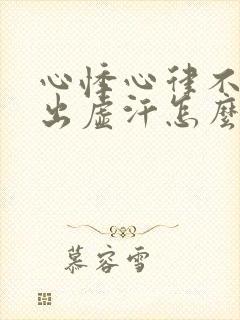 心悸心律不
出虚汗怎麽
慕容雪